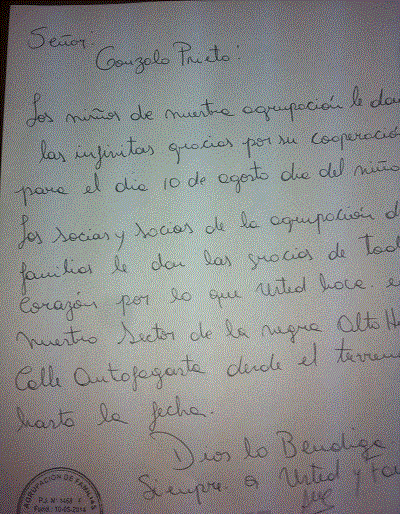 Señor:
Gonzalo Prieto:
Los niños de nuestra agrupación le dan
las infinitas gracias por su cooperació
para el dia 10 de agosto dia del niño
Los socias y socios de la agrupación d
familias le dan las gracias de tod
corazón por lo que Usted hace. e
nuestro Sector de la negra Alto H
Calle Antofagasta desde el terrem
hasta la fecha.
Dios lo Bendiga
Siempre a Usted y Fa
AGRUPACION DE FAMILIAS
P.J. N° 1468
Fund.: 10-05-2014